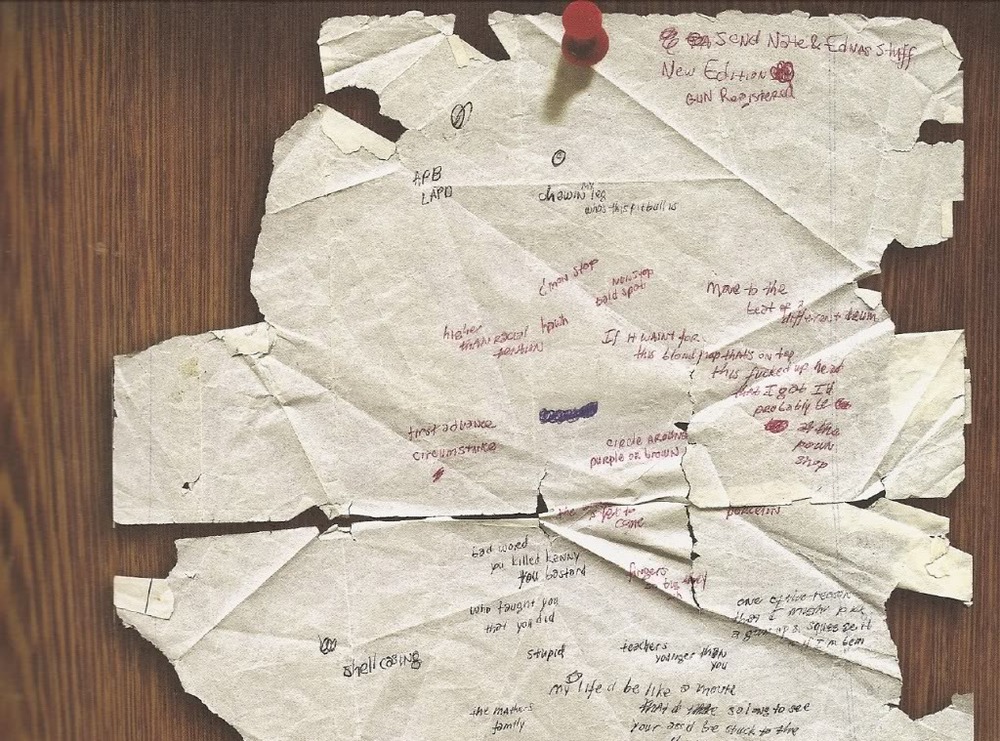 Send Nate & Ednas stuff
New Edition
GUN Registered
APB
LAPD
chewin my leg
whos this pitbull is
c'mon stop
non stop
bald spot
Move to the
beat of a
different drum
higher
than racial
tention
If it wasnt for
this blond mop thats on top
this fucked up head
that I got I'd
probably be
at the
pawn
shop
first advance
circumstance
circle around
purple or brown
the
to
come
porcelin
bad word
you killed kenny
you bastard
fingers
so big
who taught you
that you did
one of the reason
that I might
a gun up & squeeze it
if I'm bein
stupid
teachers
younger than
you
shell casing
my life'd be like a movie
that I'd be going to see
your ass'd be stuck to the
she mothers
family